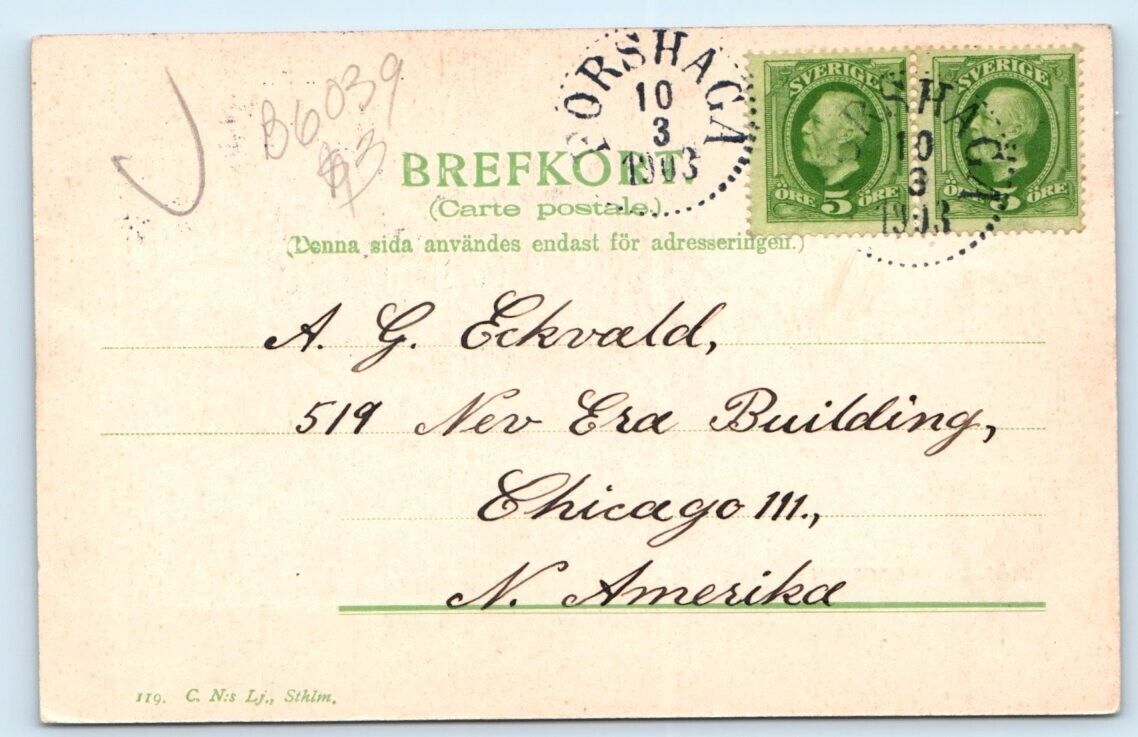 B6039
$3
FORSHAGA
10
3
1903
SVERIGE
ÖRE 5 ÖRE
SVERIGE
5 ÖRE
FORSHAGA
10
3
1903
BREFKORT.
(Carte postale.)
(Denna sida användes endast för adresseringen.)
A. G. Eckvald,
519 Nev Era Building,
Chicago Ill.,
N. Amerika
119. C. N:s Lj., Sthlm.